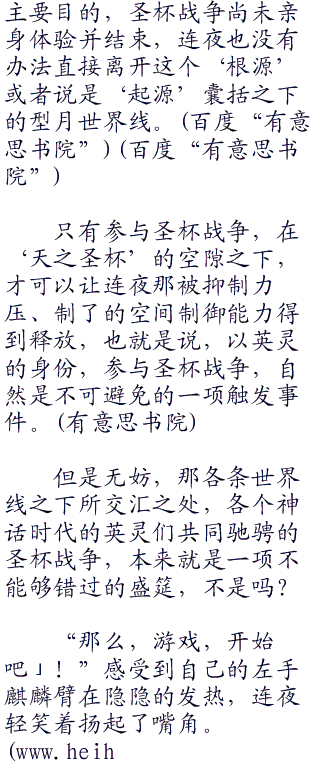 主要目的，圣杯战争尚未亲
身体验并结束，连夜也没有
办法直接离开这个‘根源’
或者说是‘起源’囊括之下
的型月世界线。(百度“有意
思书院”)(百度“有意思书
院”)
只有参与圣杯战争，在
‘天之圣杯’的空隙之下，
才可以让连夜那被抑制力
压、制了的空间制御能力得
到释放，也就是说，以英灵
的身份，参与圣杯战争，自
然是不可避免的一项触发事
件。(有意思书院)
但是无妨，那各条世界
线之下所交汇之处，各个神
话时代的英灵们共同驰骋的
圣杯战争，本来就是一项不
能够错过的盛筵，不是吗?
“那么，游戏，开始
吧」！”感受到自己的左手
麒麟臂在隐隐的发热，连夜
轻笑着扬起了嘴角。
(www.heih